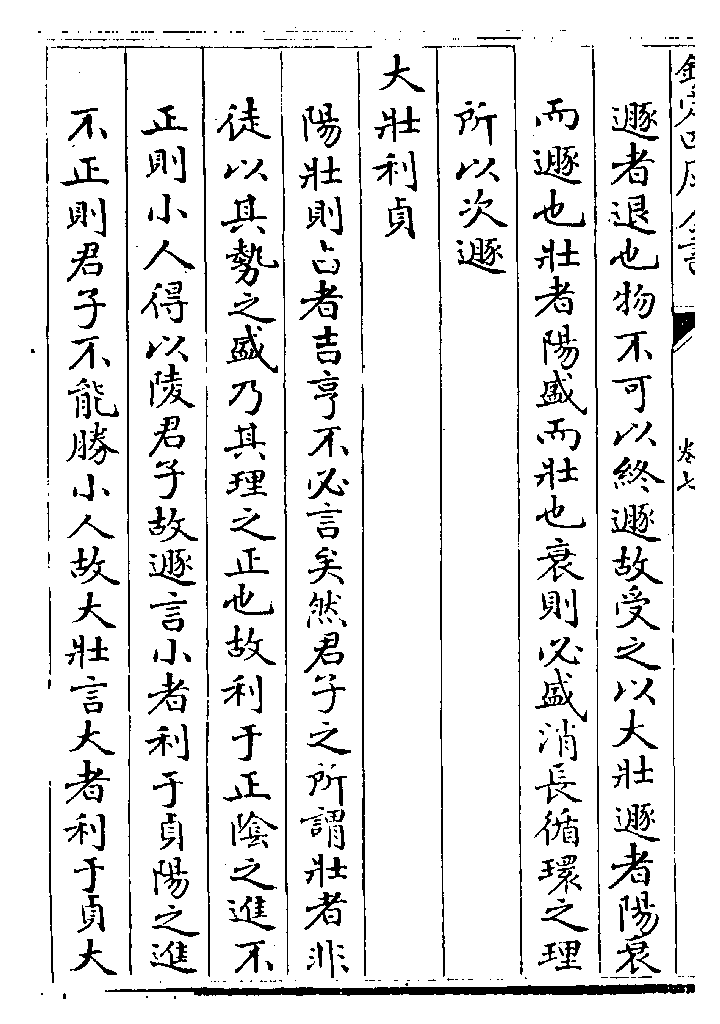 欽定四庫全書 卷七
遯者退也物不可以終遯故受之以大壯遯者陽衰
而遯也壯者陽盛而壯也衰則必盛消長循環之理
所以次遯
大壯利貞
陽壯則占者吉亨不必言矣然君子之所謂壯者非
徒以其勢之盛乃其理之正也故利于正陰之進不
正則小人得以陵君子故遯言小者利于貞陽之進
不正則君子不能勝小人故大壯言大者利于貞大